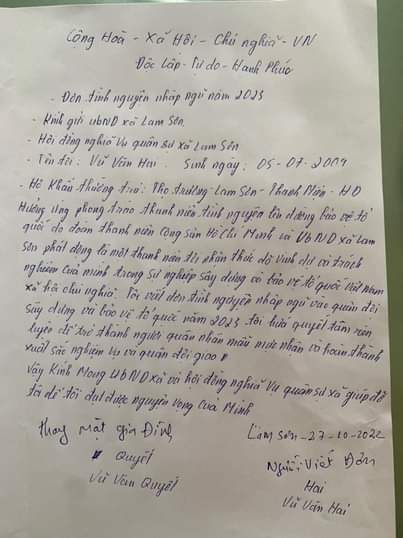 Cộng Hoà - Xã Hội - Chủ nghĩa - VN
Độc Lập - Tự do - Hạnh Phúc
- Đơn tình nguyện nhập ngũ năm 2023
- Kính gửi UBND xã Lam Sơn
- Hội đồng nghĩa vụ quân sự xã Lam Sơn
- Tên tôi: Vũ Văn Hai. Sinh ngày: 05-07-2004
- Hộ Khẩu thường trú: Thọ trương - Lam Sơn - Thanh Miện - HD
Hưởng ứng phong trào thanh niên tình nguyện lên đường bảo vệ tổ
quốc do đoàn thanh niên Cộng sản Hồ Chí Minh và UBND xã Lam
Sơn phát động là một thanh niên tôi nhận thức được Vinh dự và trách
nghiệm của mình trong sự nghiệp sây dựng và bảo vệ tổ quốc Việt Nam
xã hội chủ nghĩa. Tôi viết đơn tình nguyện nhập ngũ vào quân đội
sây dựng và bảo vệ tổ quốc năm 2023 tôi hứa quyết tâm rèn
luyện để trở thành người quân nhân mẫu mực nhân và hoàn thành
xuất sắc nghiệm vụ và quân đội giao
Vậy Kính Mong UBND xã và hội đồng nghĩa Vụ quân sự xã giúp đỡ
tôi để tôi đạt được nguyện vọng Của Mình
Thay Mặt gia Đình
Lam Sơn - 27-10-2022
Người Viết Đơn
Quyết
Hai
Vũ Văn Quyết
Vũ Văn Hai